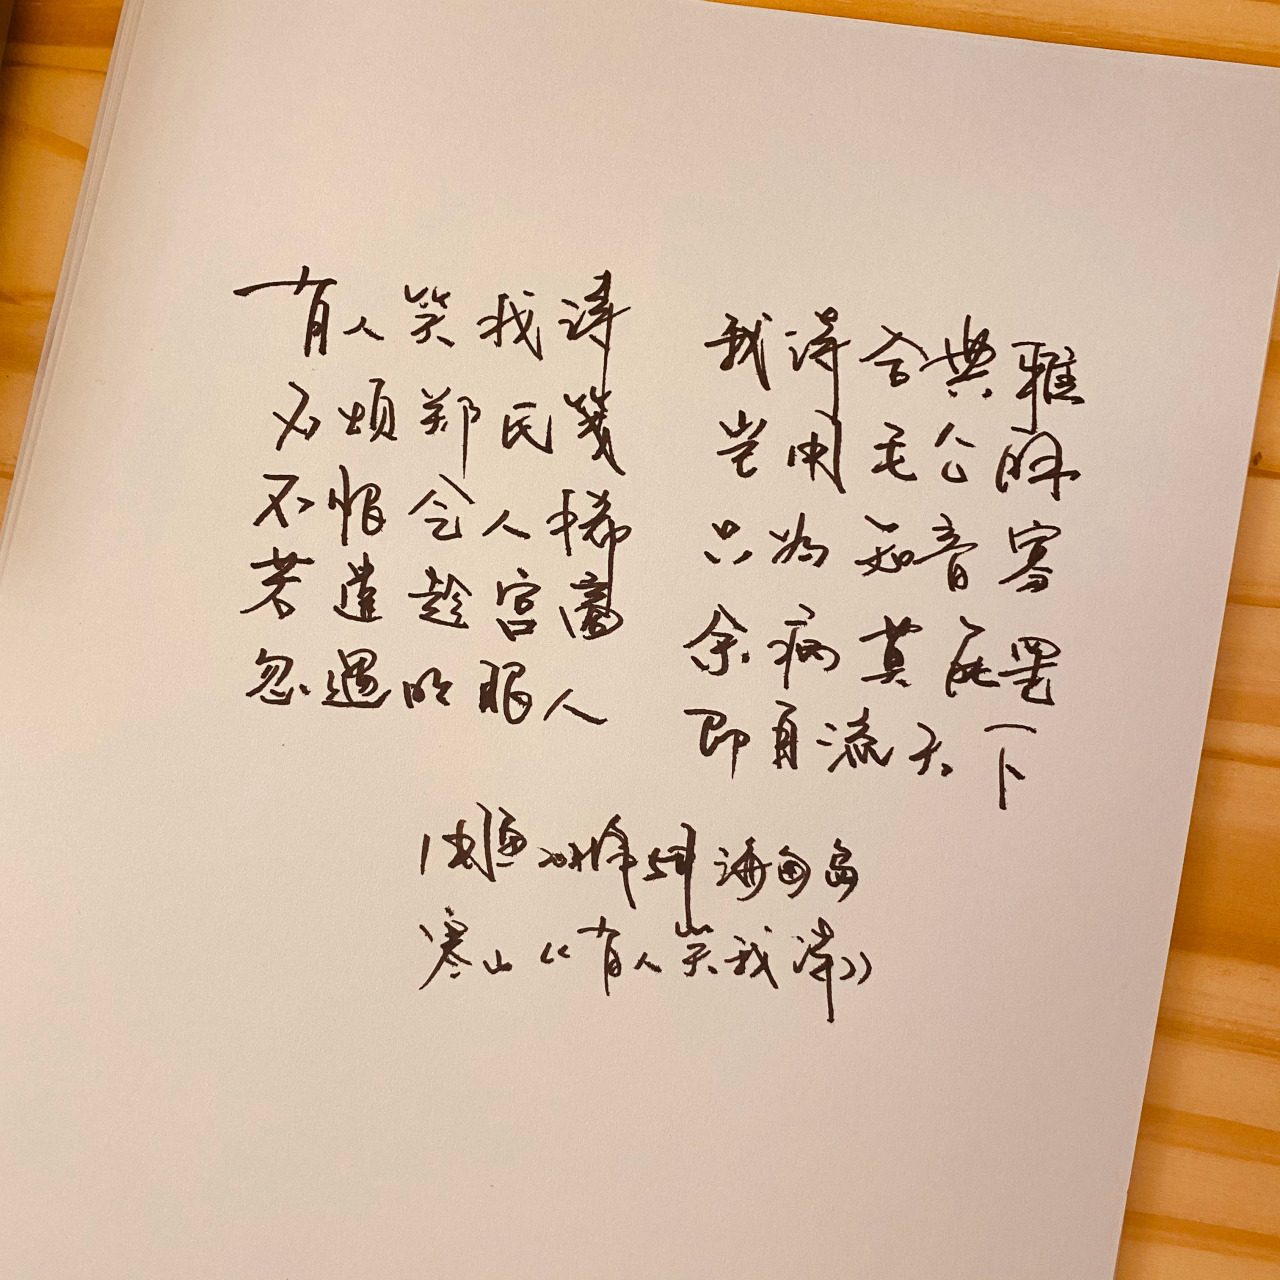 有人笑我诗 我诗合典雅
不烦郑氏笺 岂用毛公解
不恨会人稀 只为知音寡
若遣趁宫商 余病莫能罢
忽遇明眼人 即自流天下
海甸岛
寒山《有人笑我诗》